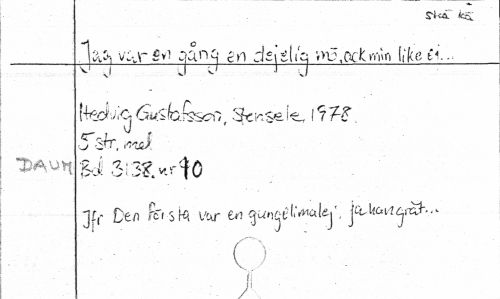 skå kå
Jag var en gång en dejelig mö, ock min like ei...
Hedvig Gustafsson, Stensele, 1978.
5 str, mel
DAUM Bd 3138. nr 10
Jfr Den första var en
ja han gråt...